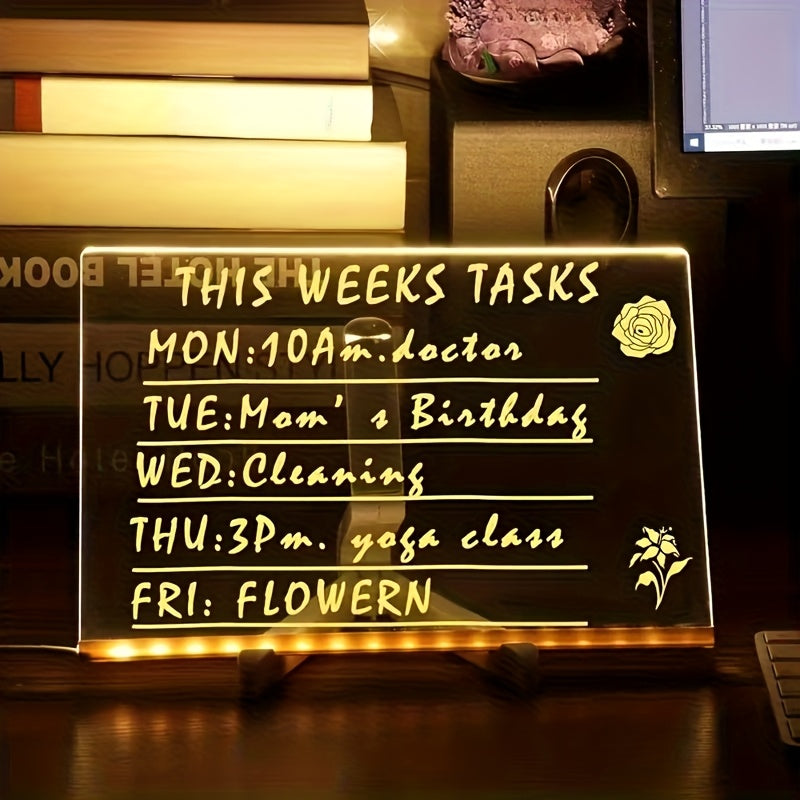 THIS WEEKS TASKS
MON:10Am.doctor
TUE:Mom's Birthday
WED:Cleaning
THU:3Pm. yoga class
FRI: FLOWERN
THE HOTEL BOOK